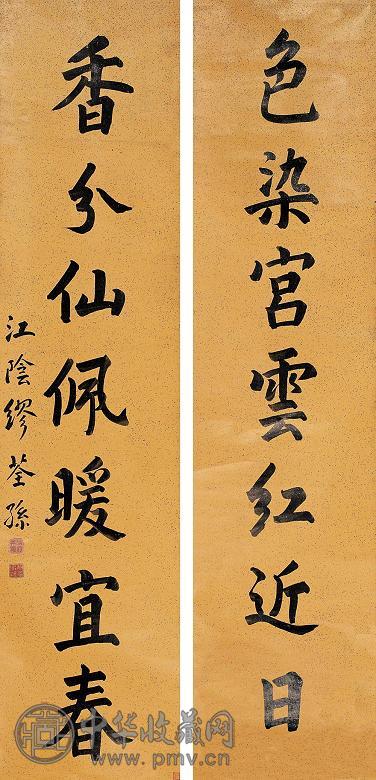 色染宮雲紅近日
香分仙佩暖宜春
江陰繆荃孫
中华收藏网
www.pmv.cn